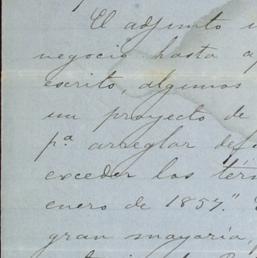 El adjunto
negocio hasta
escrito, algunos
un proyecto de
pª arreglar de
exceder los tér
enero de 1857."
gran mayoría,